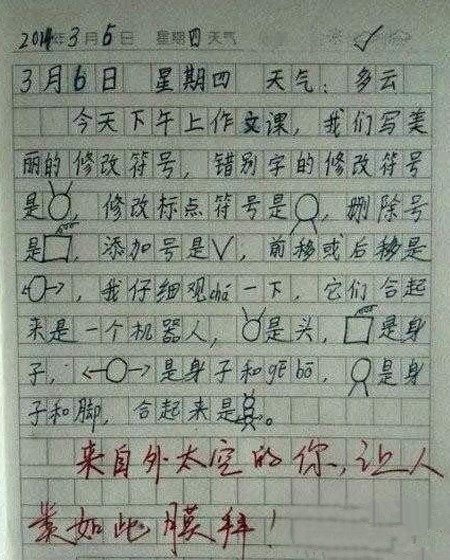 2014年3月6日 星期四 天气
3月6日 星期四 天气：多云
今天下午上作文课，我们写美
丽的修改符号，错别字的修改符号
是 修改标点符号是，删除号
是，添加号是√，前移或后移是
，我仔细观chá一下，它们合起
来是一个机器人，是头，是身
子，是身子和gēbō，是身
子和脚，合起来是。
来自外太空的你，让人
类如此膜拜！